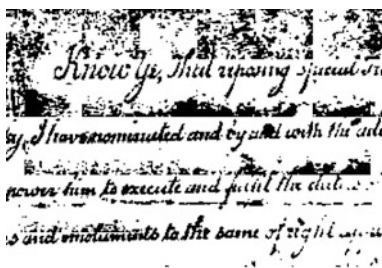 Know Ye, That reposing special
I have nominated and by and with the
power him to execute and fulfil the
and emoluments to the same of right